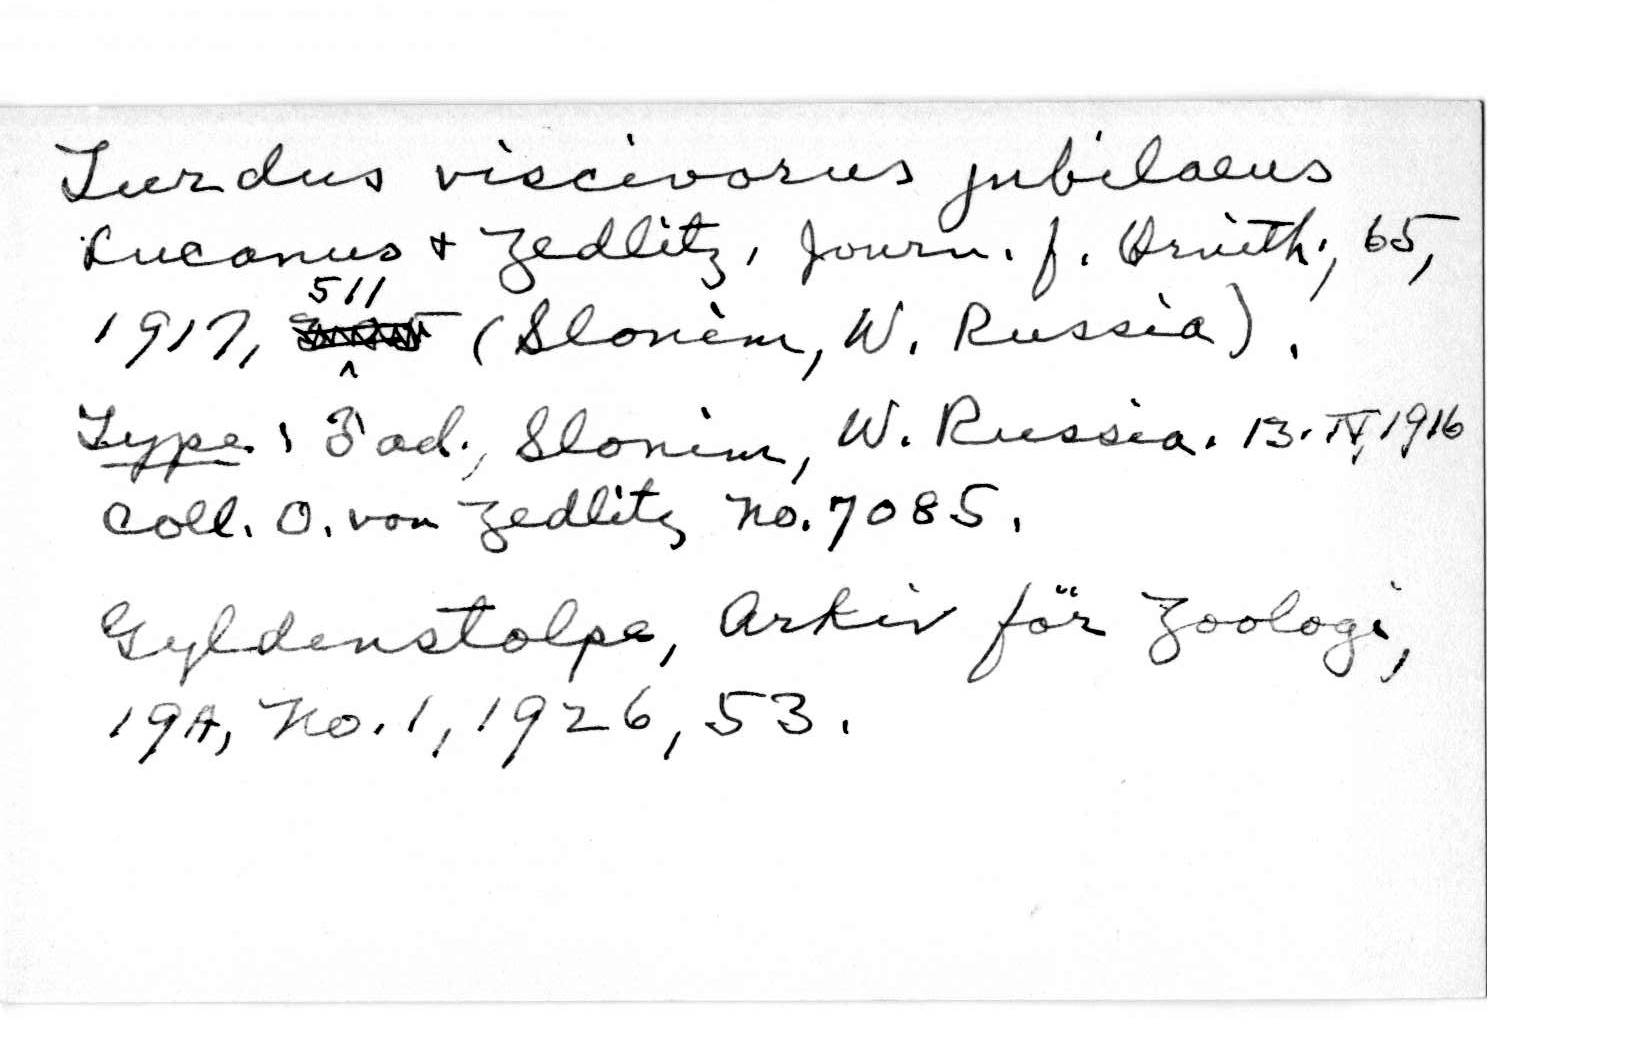 Turdus viscivorus jubilaeus
Lucanus + Zedlitz, Journ. f. Ornith., 65,
1917, 511 (Slonim, W. Russia).
Type: ♂ ad., Slonim, W. Russia. 13.IV,1916
Coll. O. von Zedlitz No. 7085.
Gyldenstolpe, Arkiv för Zoologi,
19A, No. 1, 1926, 53.